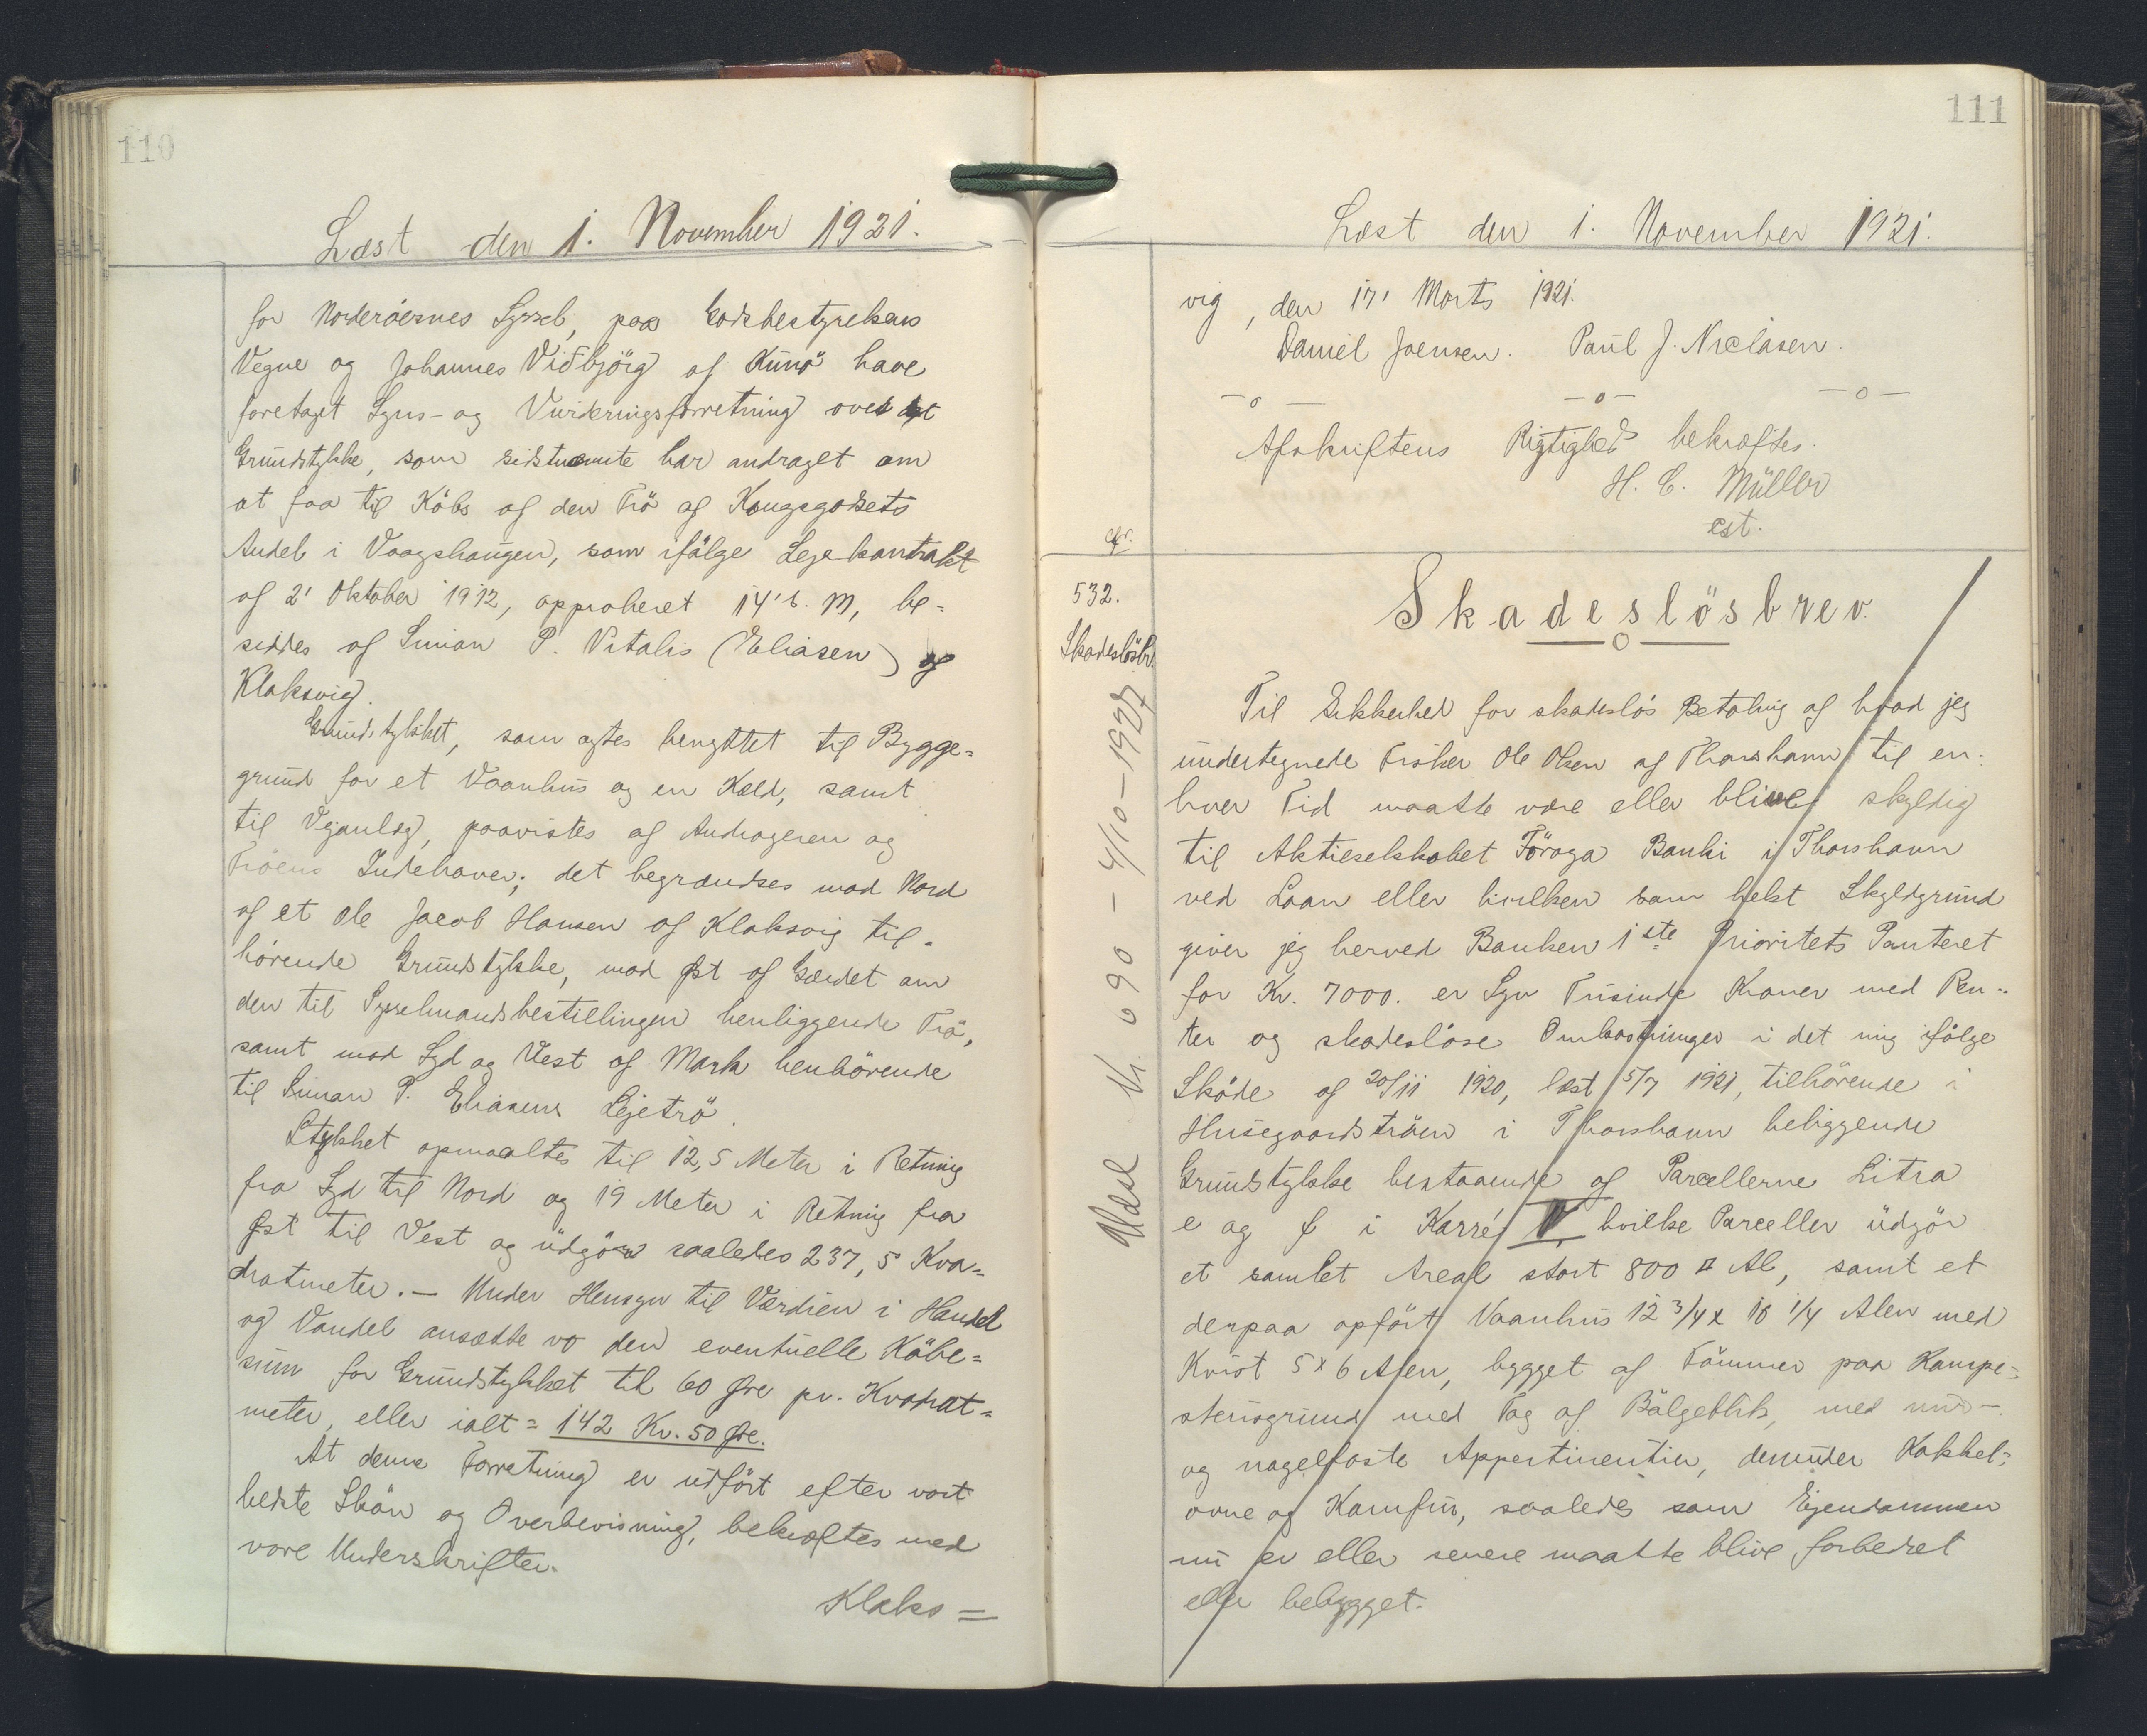 110
Læst den 1. November 1921.
for Norderöernes Syssel, paa Godsbestyrelsens
Vegne og Johannes Viðbjörg af Kunö have
foretaget Syns- og Vurderingsforretning over det
Grundstykke, som sidstnævnte har andraget om
at faa til Købs af den Trö af Kongsgodsets
Andel i Vaagshaugen, som ifølge Lejekontrakt
af 2' Oktober 1912, approberet 14' s. M, be=
siddes af Simon P. Vitalis (Eliasen) af
Klaksvig.
Grundstykket, som agtes benyttet til Bygge=
grund for et Vaanhus og en Kæld, samt
til Vejanlæg, paavistes af Andrageren og
Tröens Indehaver; det begrændses mod Nord
af et Ole Jacob Hansen af Klaksvig til=
hörende Grundstykke, mod Øst af Gærdet om
den til Sysselmandsbestillingen henliggende Trö,
samt mod Syd og Vest af Mark henhörende
til Simon P. Eliasens Lejetrö.
Stykket opmaaltes til 12,5 Meter i Retning
fra Syd til Nord og 19 Meter i Retning fra
Øst til Vest og udgör saaledes 237,5 Kva=
dratmeter. — Under Hensyn til Værdien i Handel
og Vandel ansætte vo den eventuelle Købe=
sum for Grundstykket til 60 Øre pr. Kvadrat=
meter, eller ialt = 142 Kr. 50 Øre.
At denne Forretning er udfört efter vort
bedste Skön og Overbevisning, bekræftes med
vore Underskrifter.
Klaks=
111
Læst den 1. November 1921.
vig, den 17' Marts 1921.
Daniel Joensen. Paul J. Niclasen.
—o— —o— —o—
Afskriftens Rigtighed bekræftes.
H. C. Müller
est.
cfr.
532.
Skadeslösbr.
Udsl. N. 690 – 4/10 – 1927
Skadeslösbrev.
Til Sikkerhed for skadeslös Betaling af hvad jeg
undertegnede Fisker Ole Olsen af Thorshavn til en=
hver Tid maatte være eller blive skyldig
til Aktieselskabet Föroya Banki i Thorshavn
ved Laan eller hvilken som helst Skyldgrund
giver jeg herved Banken 1ste Prioritets Panteret
for Kr. 7000. er Syv Tusinde Kroner med Ren=
ter og skadeslöse Omkostninger i det mig ifölge
Sköde af 20/11 1920, læst 5/7 1921, tilhörende i
Husegaardströen i Thorshavn beliggende
Grundstykke bestaaende af Parcellerne Litra
e og f i Karré V, hvilke Parceller udgör
et samlet Areal stort 800 □ Al, samt et
derpaa opfört Vaanhus 12 3/4 x 10 1/4 Alen med
Kvist 5 x 6 Alen, bygget af Tömmer paa Kampe=
stensgrund med Tag af Bölgeblik, med mur-
og nagelfaste Appertinentier, derunder Kakkel=
ovne og Komfur, saaledes som Ejendommen
nu er eller senere maatte blive forbedret
eller bebygget.